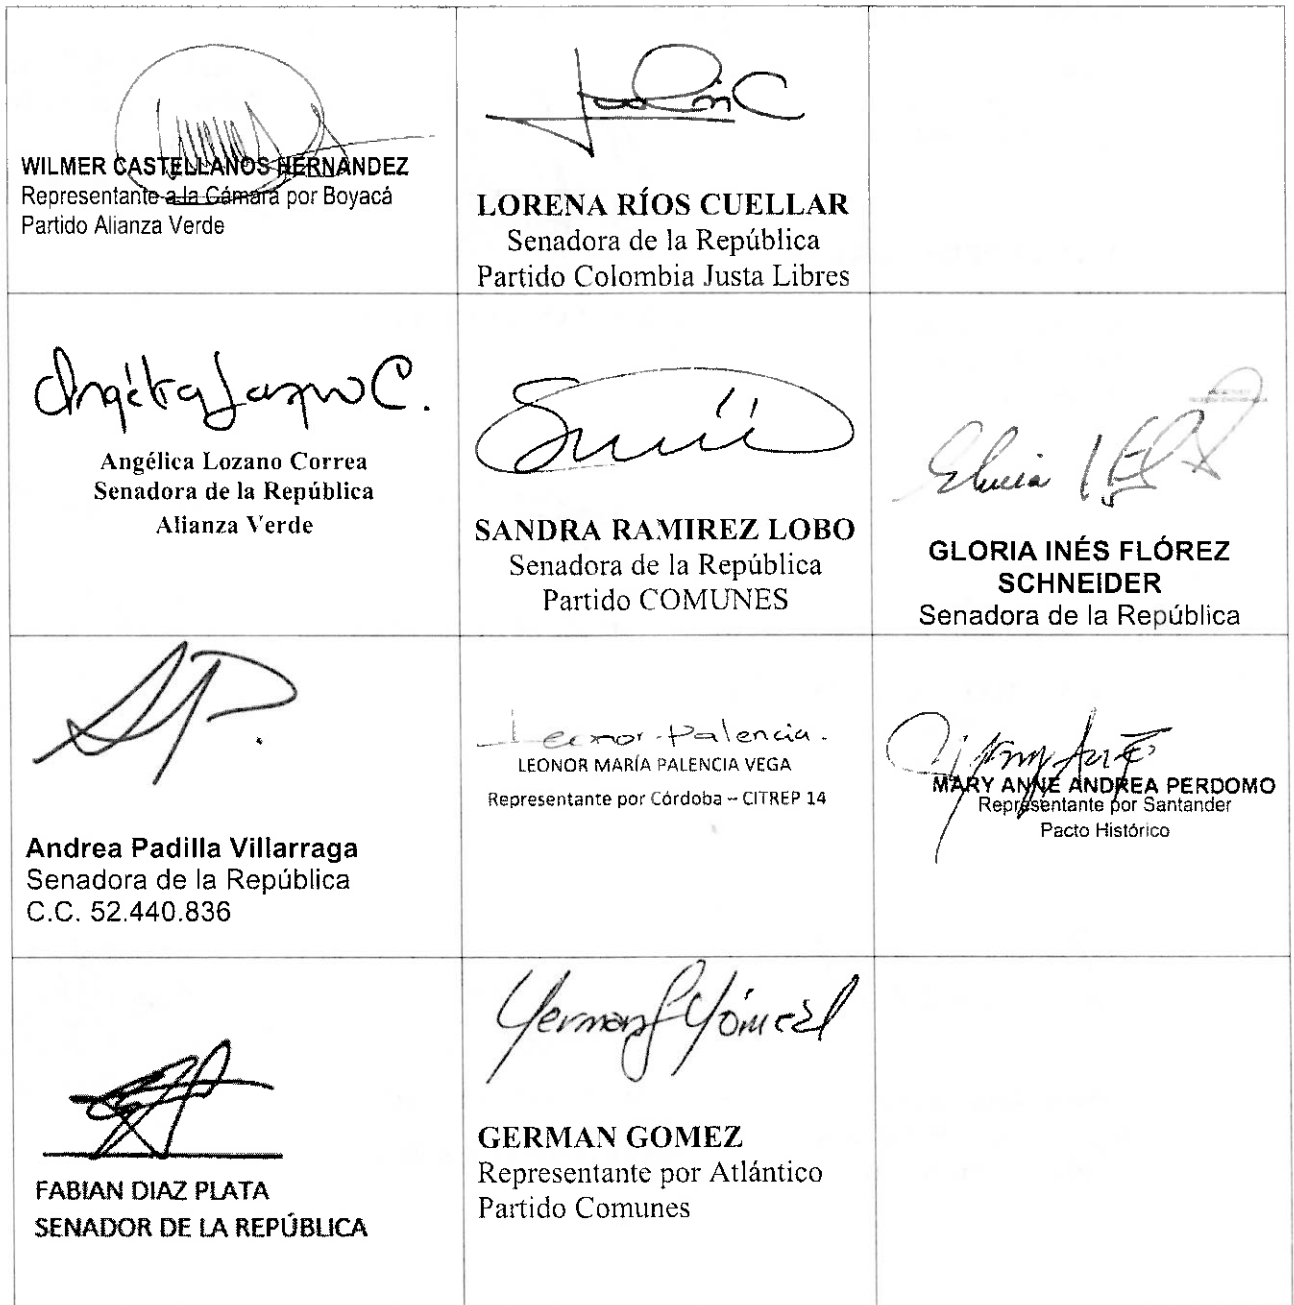 WILMER CASTELLANOS HERNÁNDEZ
Representante a la Cámara por Boyacá
Partido Alianza Verde
LORENA RÍOS CUELLAR
Senadora de la República
Partido Colombia Justa Libres
Angélica Lozano C.
Angélica Lozano Correa
Senadora de la República
Alianza Verde
SANDRA RAMIREZ LOBO
Senadora de la República
Partido COMUNES
GLORIA INÉS FLÓREZ
SCHNEIDER
Senadora de la República
Andrea Padilla Villarraga
Senadora de la República
C.C. 52.440.836
Leonor Palencia.
LEONOR MARÍA PALENCIA VEGA
Representante por Córdoba – CITREP 14
MARY ANNE ANDREA PERDOMO
Representante por Santander
Pacto Histórico
FABIAN DIAZ PLATA
SENADOR DE LA REPÚBLICA
German Gómez
GERMAN GOMEZ
Representante por Atlántico
Partido Comunes